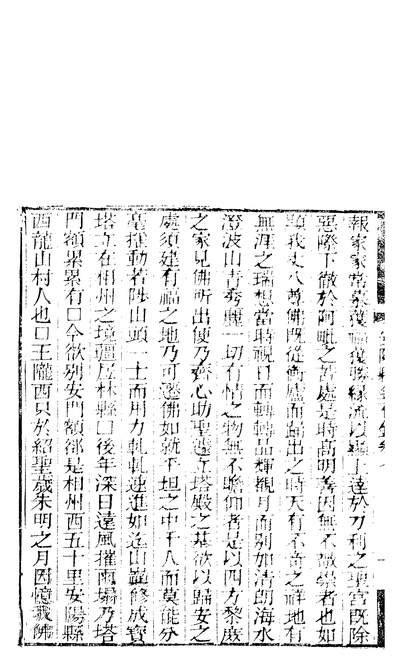 報家家常蒙覆福獲勝緣流以興上達於刀利之聖宮既除
惡際下徹於阿毗之苦處是時高明善因無不崇者也如
我丈八尊佛既從衡廬而歸出之時天有不音之祥地有
無涯之瑞想當時視日而轉轉品輝觀月而別如清朗海水
澄波山青秀麗一切有情之物無不瞻仰者是以四方黎庶
之家見佛所出便乃齊心助聖遷立塔殿之基欲以歸安之
處須建有福之地乃可遷佛如就平坦之中千人而莫能分
毫動若陟山頭一士而用力軋軋運進如迄山巔修成寶
塔立在相州之境彊居林縣口後年深日遠風摧雨塌乃塔
門額累累有口今欲別安門額卻是相州西五十里安陽縣
西龍山村人也口王隴西貝於紹聖歲朱明之月因憶佛